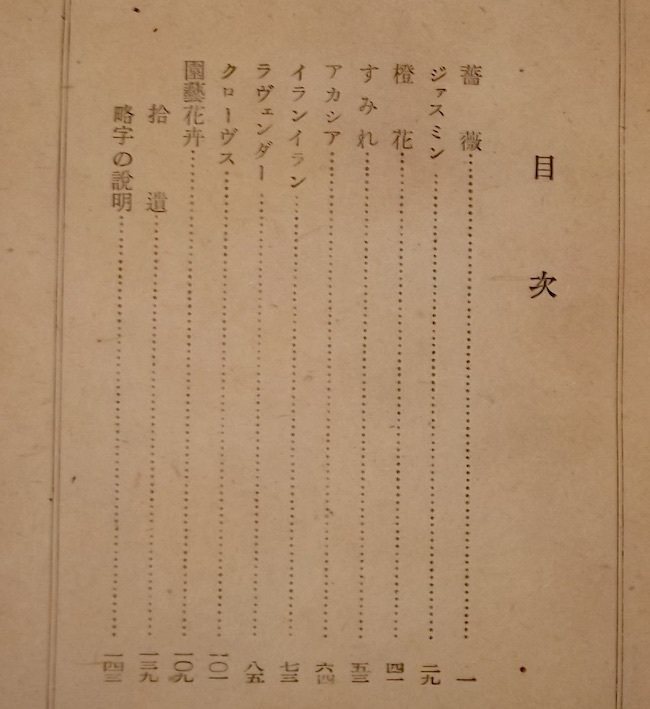 目次
薔薇……一
ジァスミン……二九
橙花……四一
すみれ……五三
アカシア……六四
イランイラン……七三
ラヴェンダー……八五
クローヴス……一〇一
園藝花卉……一〇九
拾遺……一三九
略字の説明……一四三